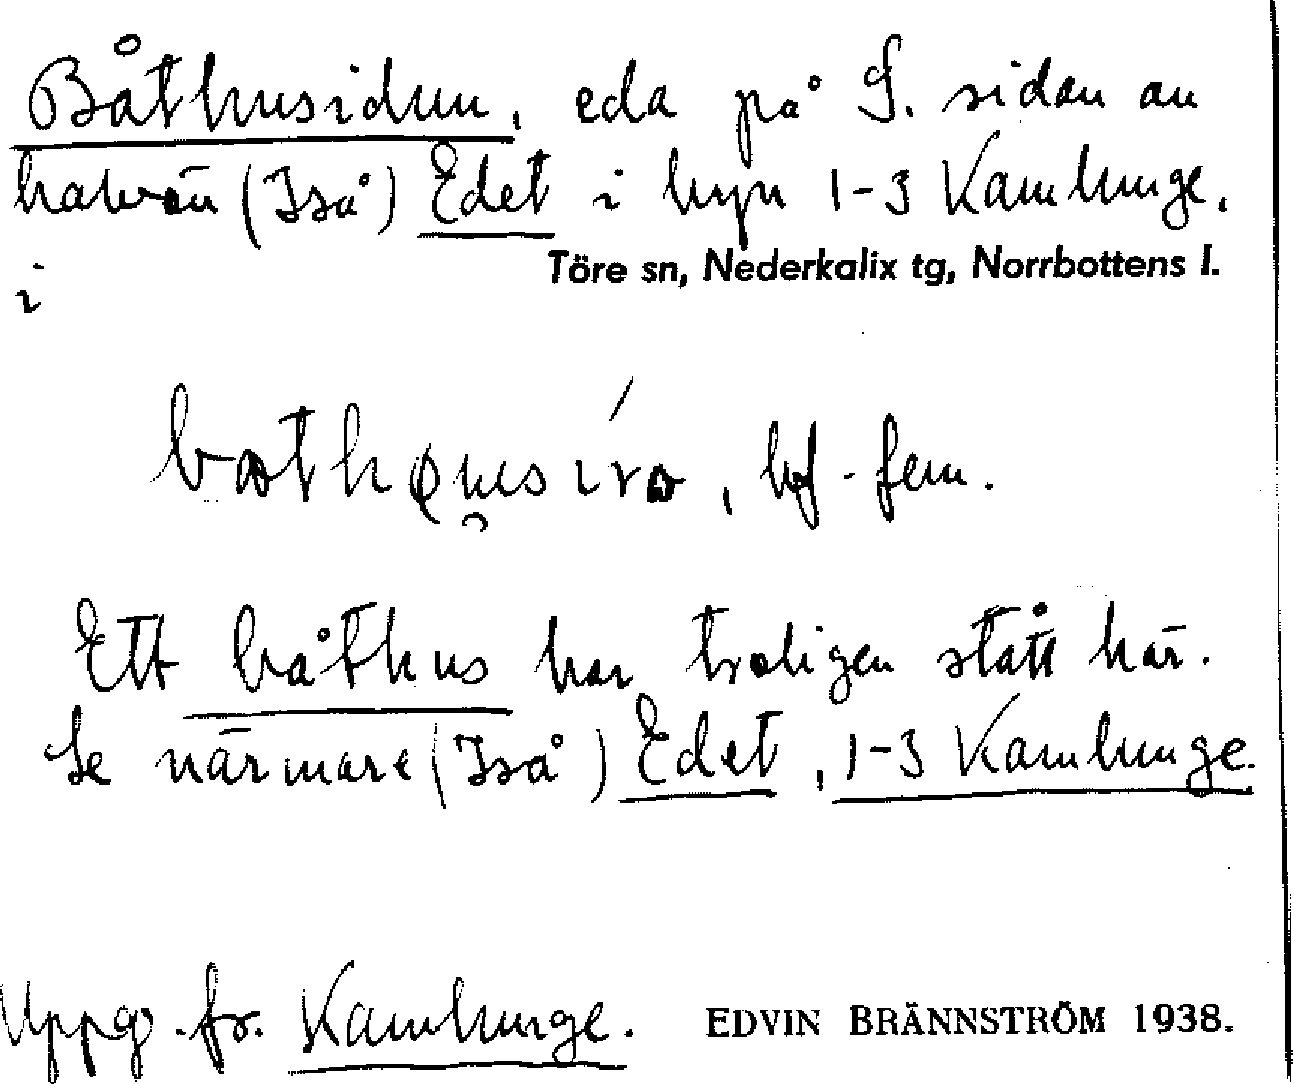 Båthusidun, eda på S. sidan av
halvön (Iså) Edet i byn 1-3 Kamlunge,
Töre sn, Nederkalix tg, Norrbottens l.
i
bf. fem.
Ett båthus har troligen stått här.
Se närmare (Iså) Edet, 1-3 Kamlunge.
Uppg. fr. Kamlunge. EDVIN BRÄNNSTRÖM 1938.